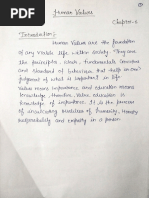 Human Values
Chapter-1
Introduction:
Human Values are the foundation
of any viable life within society. They are
the principles, ideals, fundamentals, convictions
and standard of behavior that help in our
judgment of what is important in life.
Value means importance and education means
knowledge, therefore Value education is
knowledge of importance. It is the process
of inculcating qualities of humanity, honesty
and empathy in a person